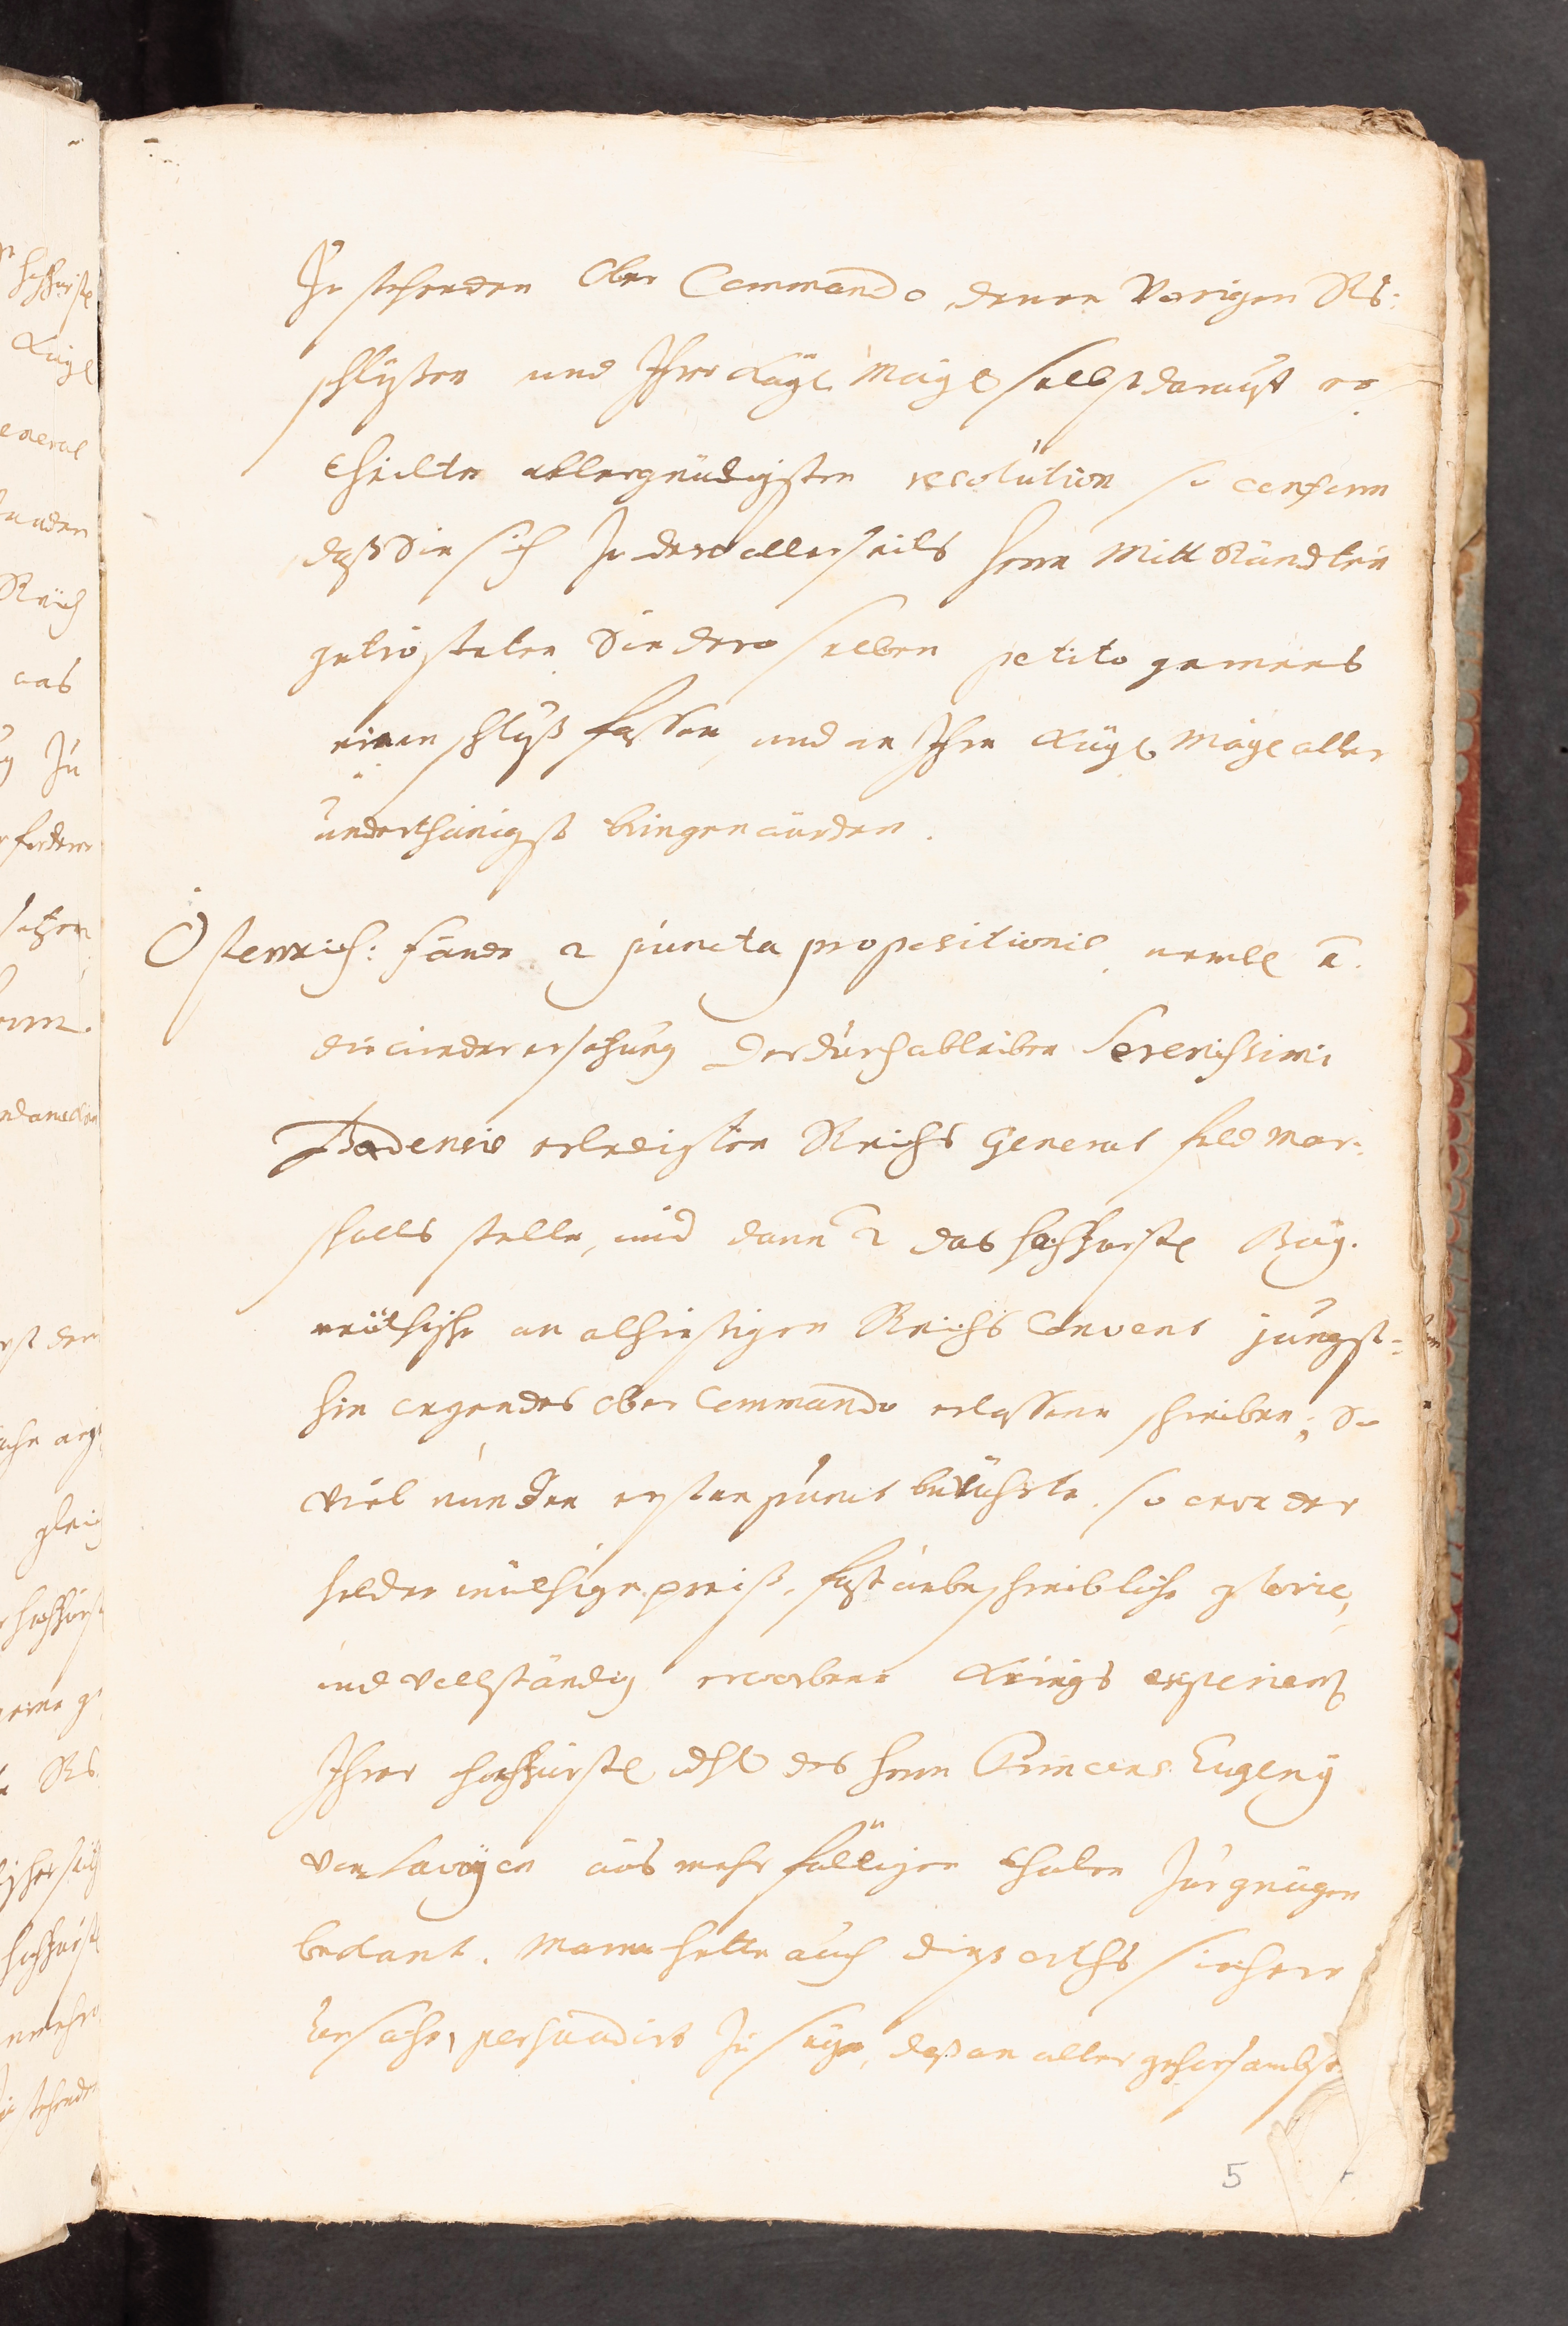 Zu stehenden Ober Commando denen Vorigen Rs:
schlüssen und Ihro Kayl. Mayl selbst darauff er
theilte allergnädigsten resolution so conform
daß Sie sich Zu dero allerseits herrn Mitt Ständten
getrösteten Sie dero selben petito gemees
einen schluß fassen, und an Ihre Kayl Mayl aller
underthänigst bringen würden.
Österreich: fände 2 puncta propositionis, nembl 1.
die wieder ersetzung der durch ableiben Serenissimi
Badensis erledigten Reichs General feld Mar:
schalls stelle, und dann 2 das hochfürstl Bay:
reüthische an alhiesigen Reichs Convent jüngst:
hin wegen des ober Commando erlassene schreiben; So
viel nun den ersten punct berührte, so were der
helden müthige preiß, fast unbeschreibliche glorie,
und vollständig erworbene Kriegs experienz
Ihrer hochfürstl dhl des herrn Princens Eugeny
von Savoyen aus mehr fälligen thaten Zur gnügen
bekant. Mann hette auch diß orths sichere
Ursache, persuadirt Zu seyn, daß an aller gehorsambste
5